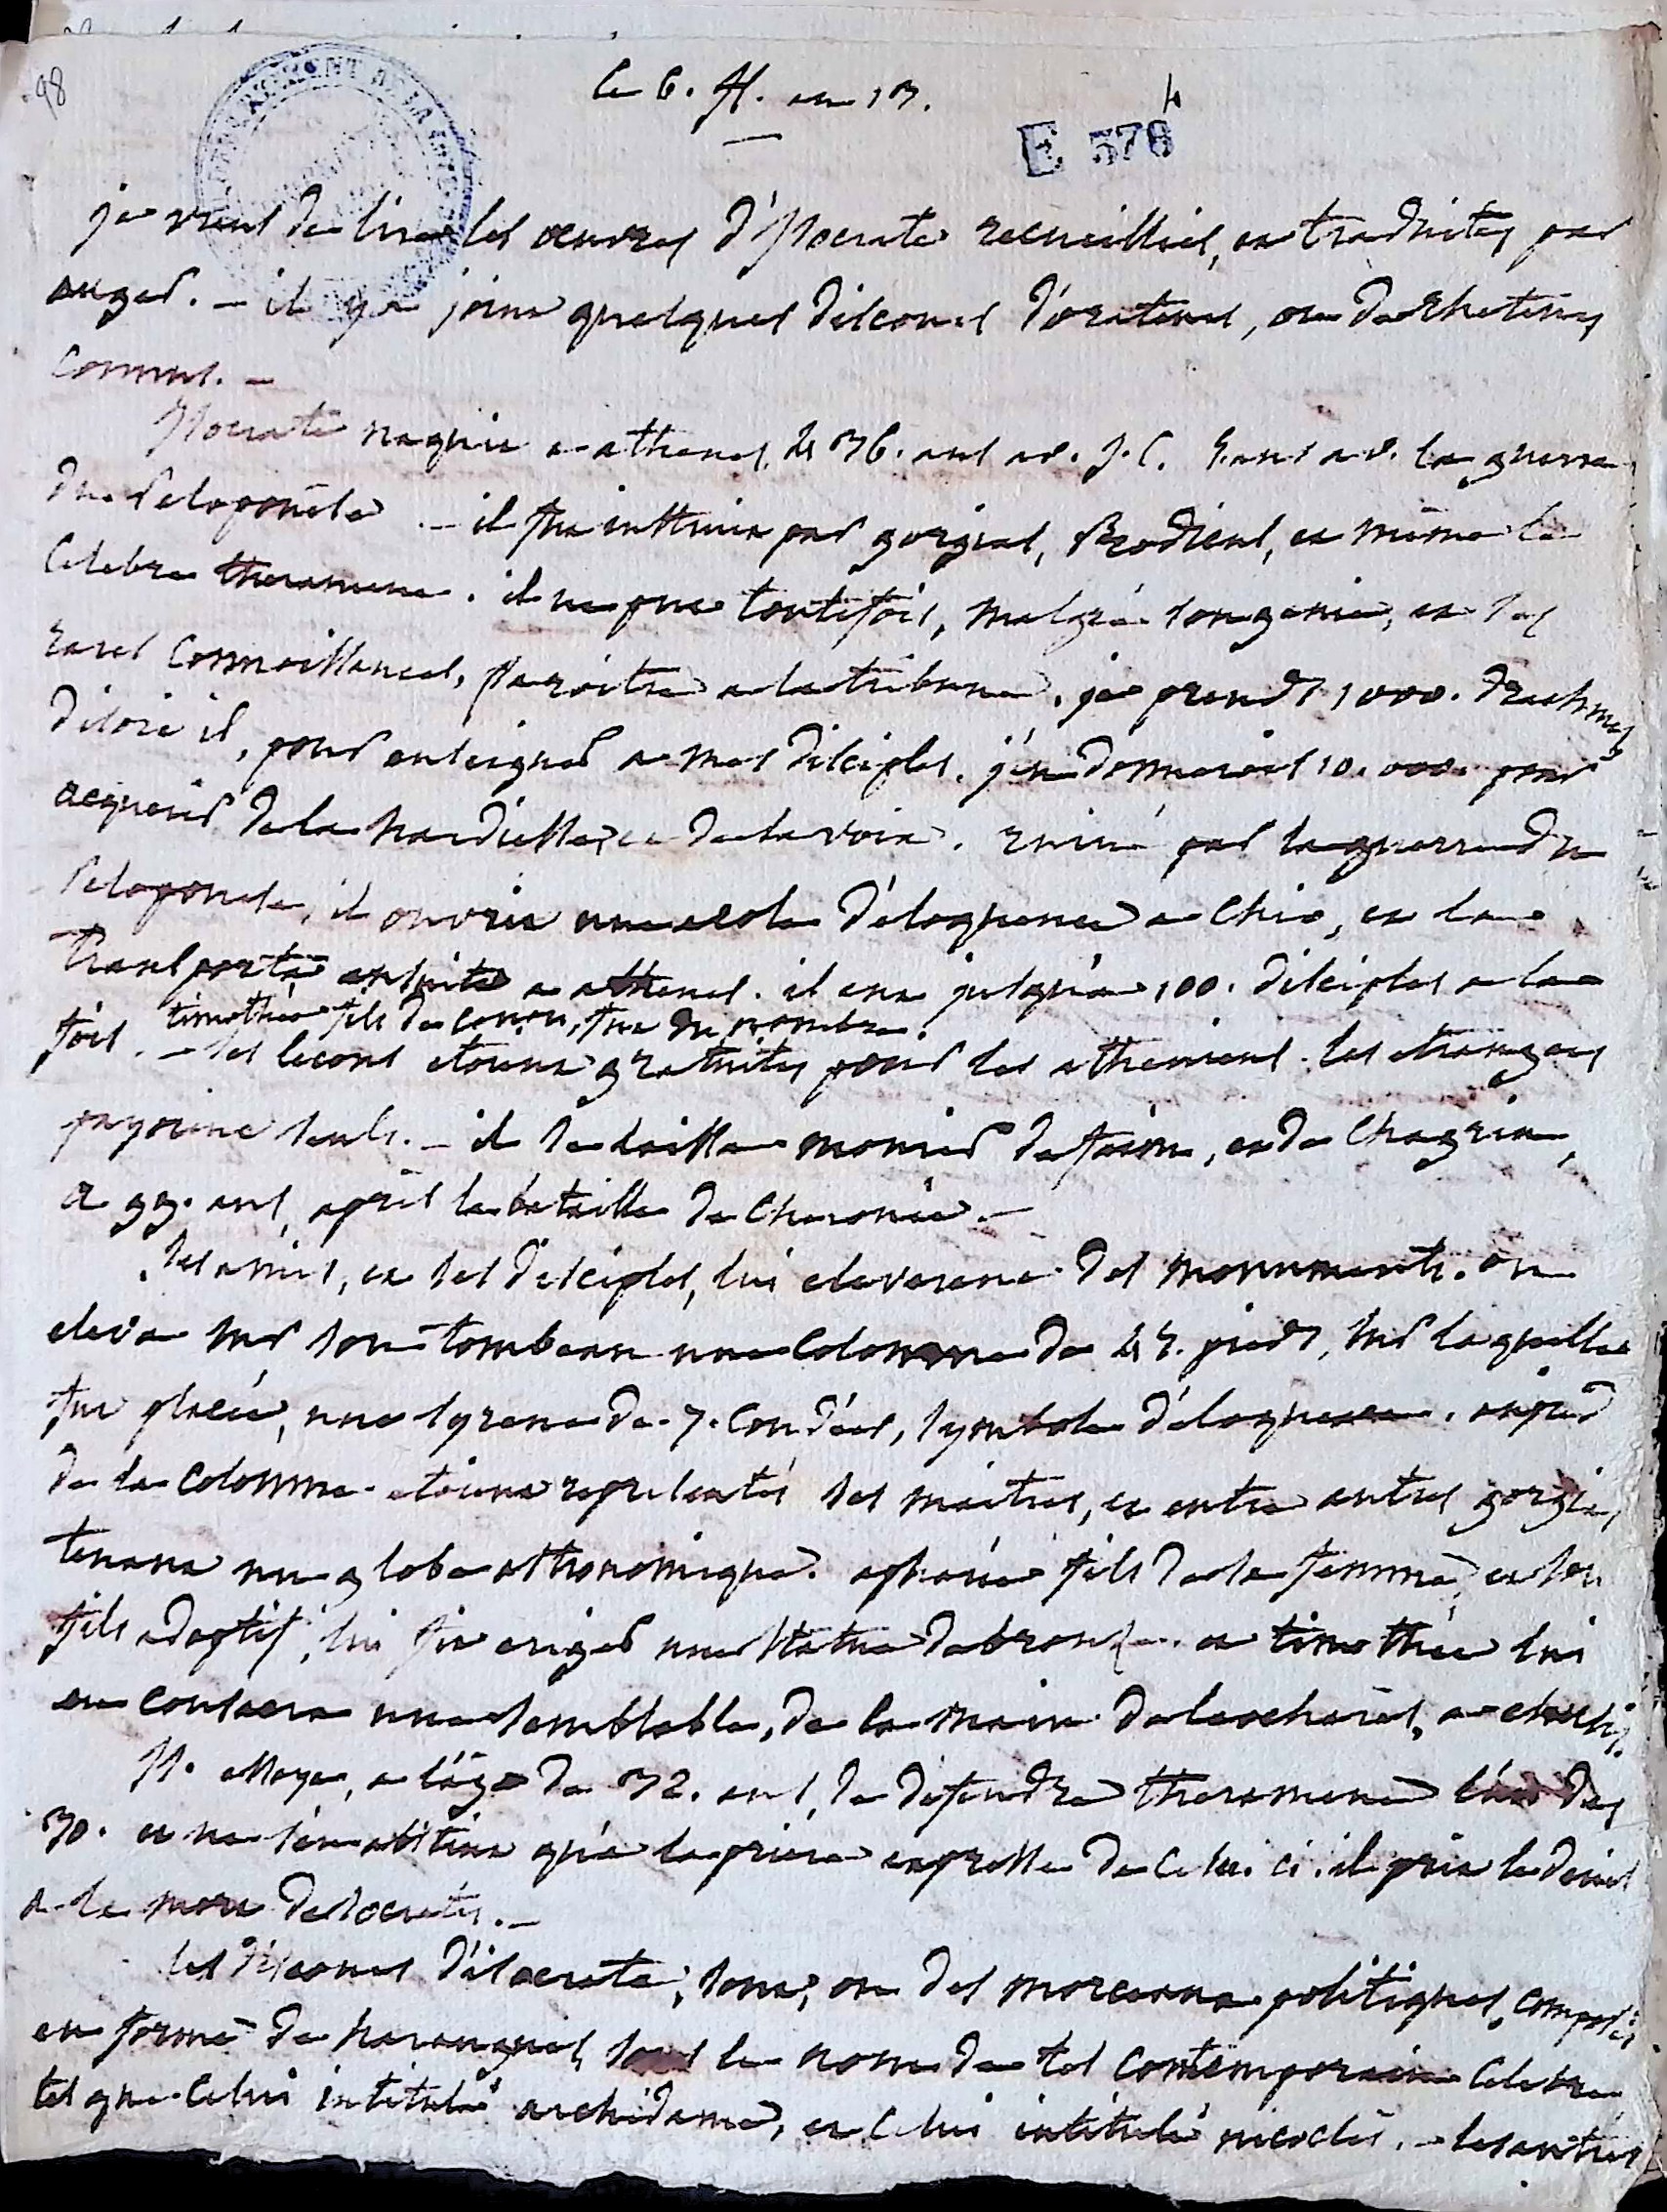 98
le 6. fl. an 13.
4
E 576
je viens de lire les œuvres d'Isocrate recueillies, et traduites par
auger. — il y a joint quelques discours d'orateurs, ou de rheteurs
connus. —
Isocrate naquit a athenes, 436. ans av. J.C. 5. ans av. la guerre
du Peloponèse. — il fut instruit par gorgias, Prodicus, et même le
celebre theramene. il ne put toutefois, malgré son genie, et ses
rares connoissances, paroitre a la tribune. je prends 1000. drachmes
disoit il, pour enseigner a mes disciples. j'en donnerois 10.000. pour
acquerir de la hardiesse, et de la voix. ruiné par la guerre du
Peloponese, il ouvrit une ecole d'éloquence a Chio, et la
transporta ensuite a athenes. il eut jusqu'a 100. disciples a la
fois. timothée fils de conon, fut du nombre.
— ses lecons etoient gratuites pour les atheniens. les etrangers
payoient seuls. — il se laissa mourir de faim, et de chagrin,
a 99. ans, après la bataille de Cheronée. —
ses amis, et ses disciples, lui eleverent des monuments. on
eleva sur son tombeau une colonne de 45. pieds, sur laquelle
fut placée, une syrene de 7. coudées, symbole d'éloquence. au pied
de la colonne etoient representés ses maitres, et entre autres gorgias,
tenant un globe astronomique. apharée fils de sa femme, et son
fils adoptif, lui fit eriger une statue de bronze. et timothée lui
en consacra une semblable, de la main de leocharès, a eleusis.
Is. essaya, a l'âge de 32. ans, de defendre theramene l'un des
30. et ne s'en abstint qu'a la prière expresse de celui ci. il prit le deuil
a la mort de socrates. —
les discours d'isocrate, sont, ou des morceaux politiques, composés
en forme de harangues, sous le nom de tel contemporain celebre
tel que celui intitulé archidame, et celui intitulé nicoclès. — les autres